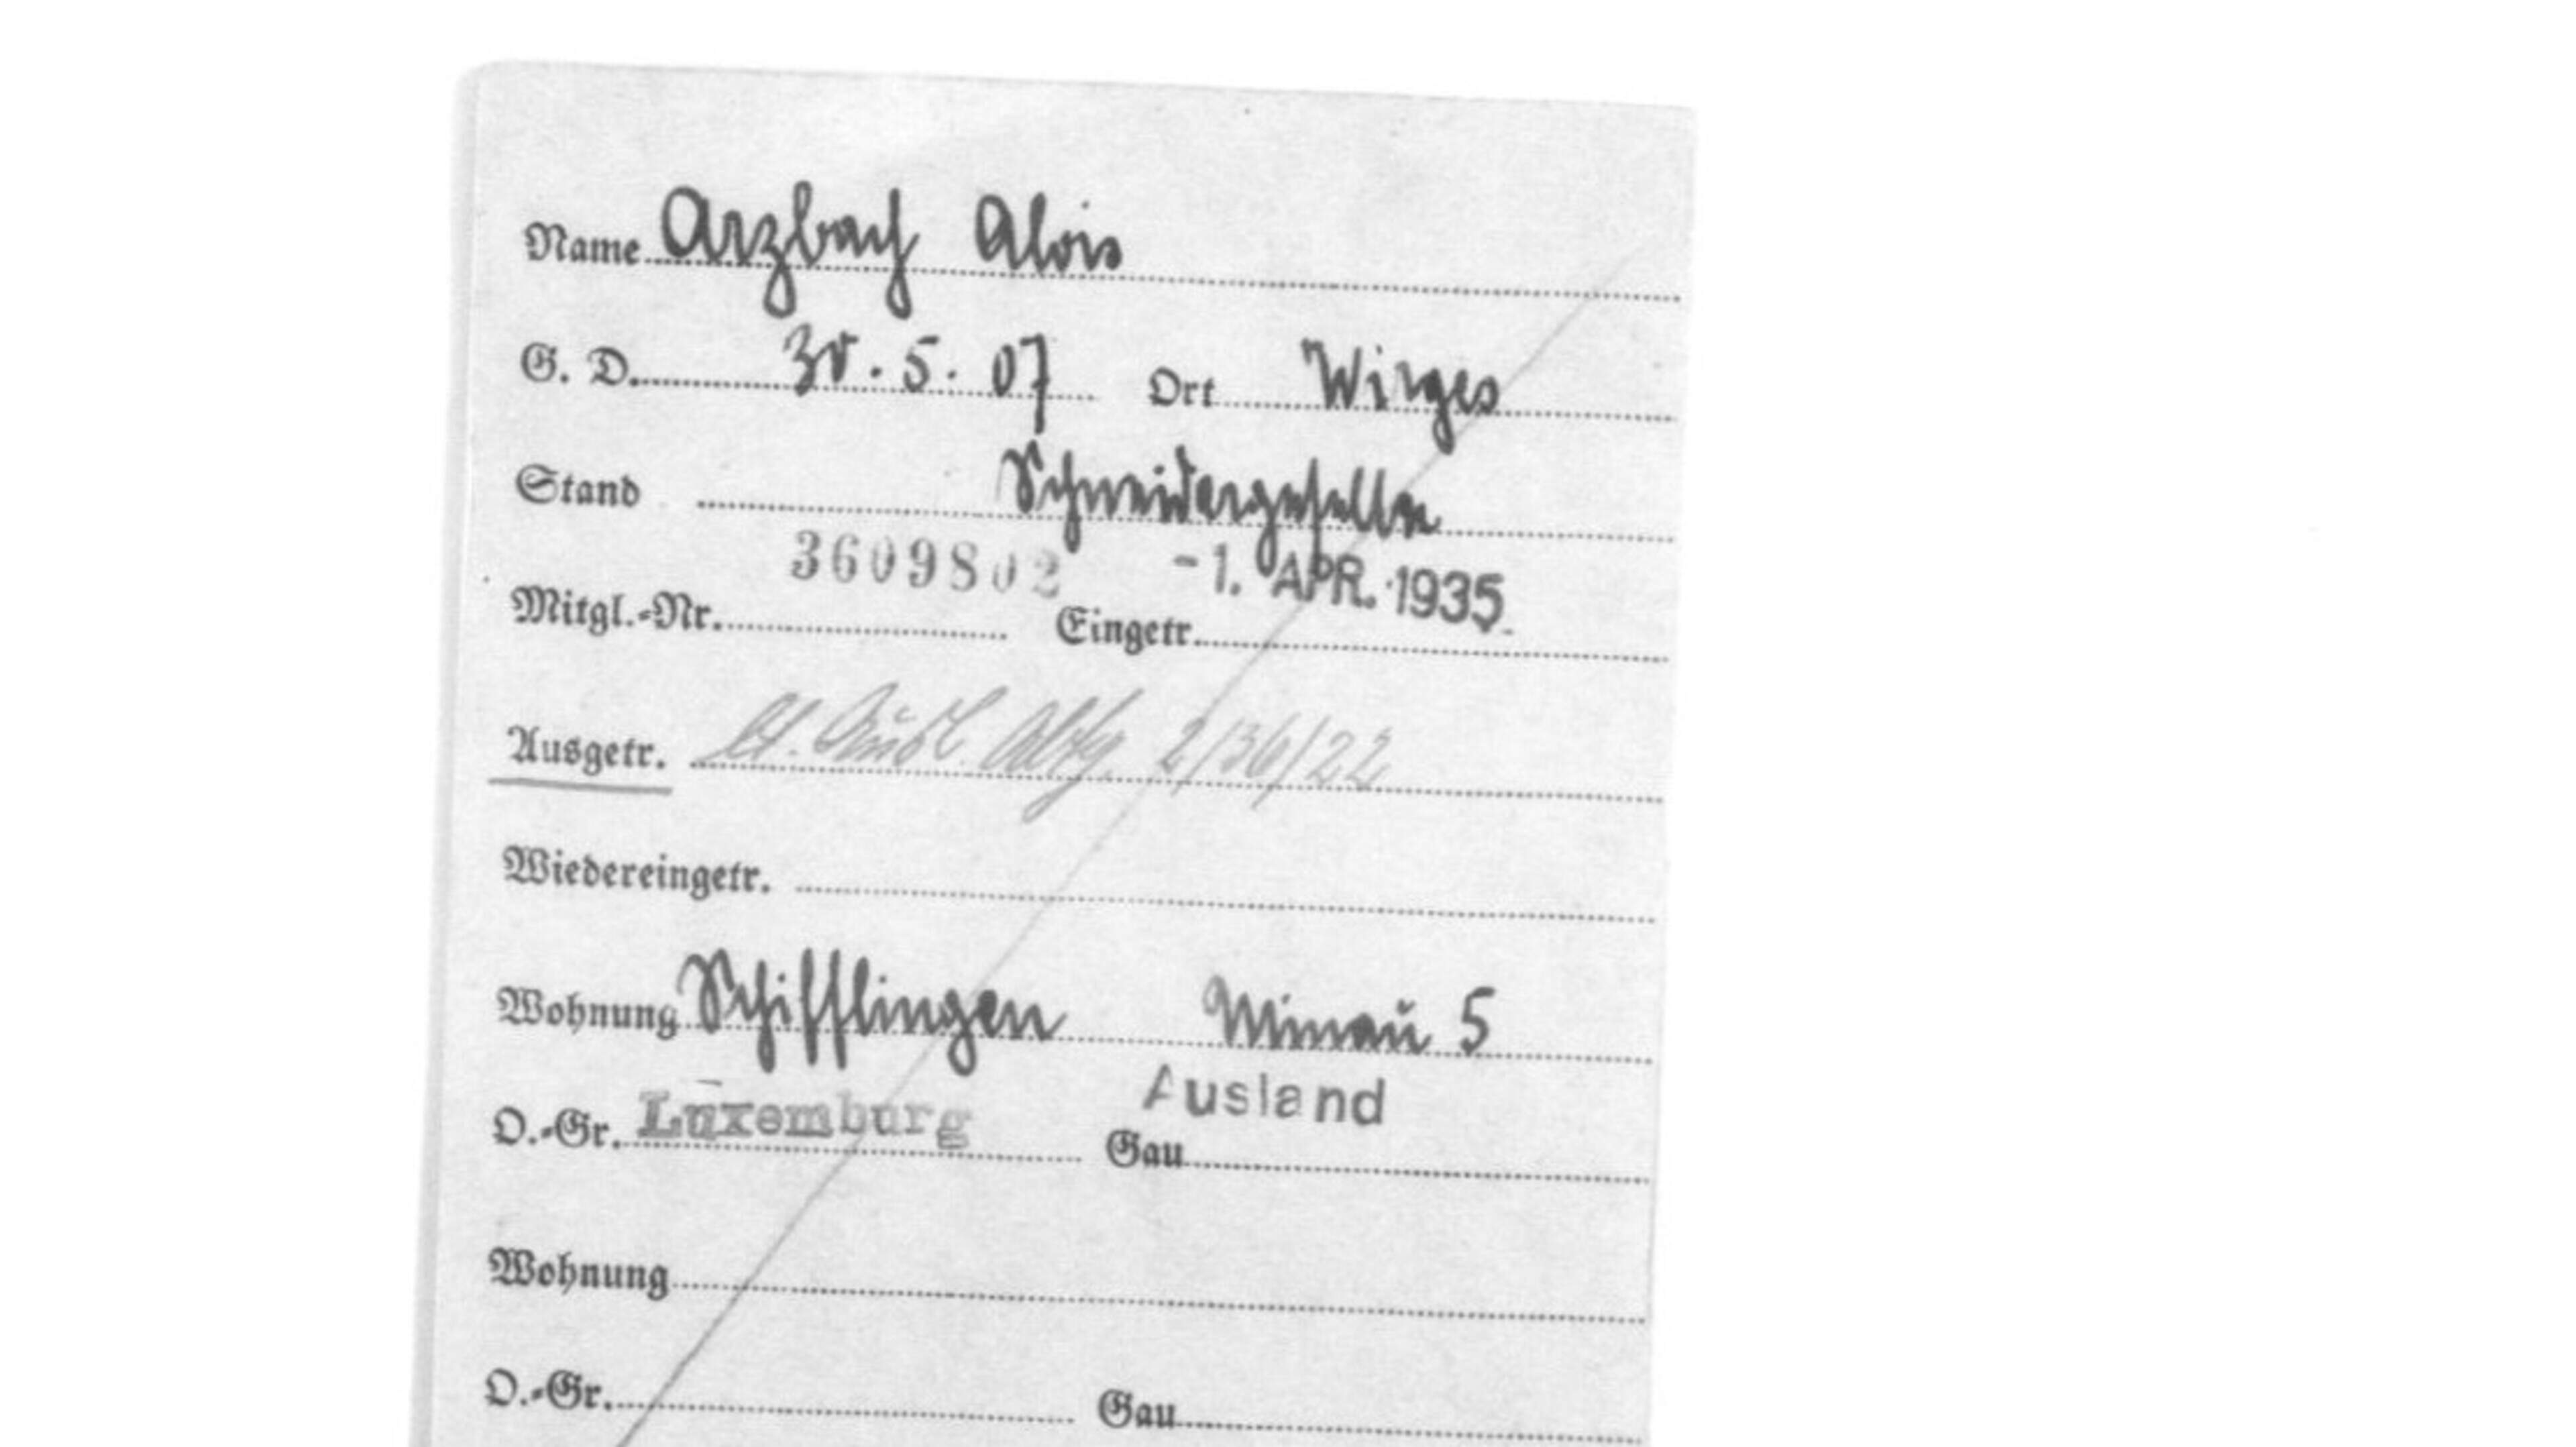 Name Arzbach Alois
G. D. 30. 5. 07 Ort Wirges
Stand Schneidergeselle
3609802 -1. APR. 1935
Mitgl.-Nr. Eingetr.
Ausgetr. lt. Abtg. 2/36/22
Wiedereingetr.
Wohnung Schifflingen 5
Ausland
O.-Gr. Luxemburg Gau
Wohnung
O.-Gr. Gau